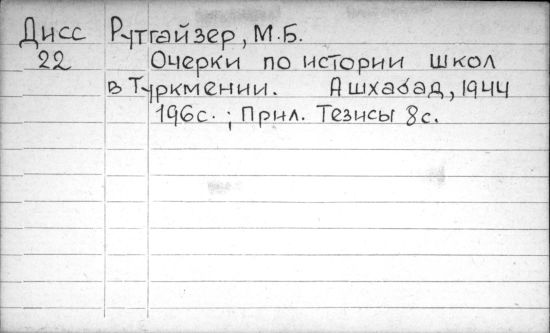 Дисс Рутгайзер, М.Б.
22 Очерки по истории школ
в Туркмении. Ашхабад, 1944
196с. ; Прил. Тезисы 8с.